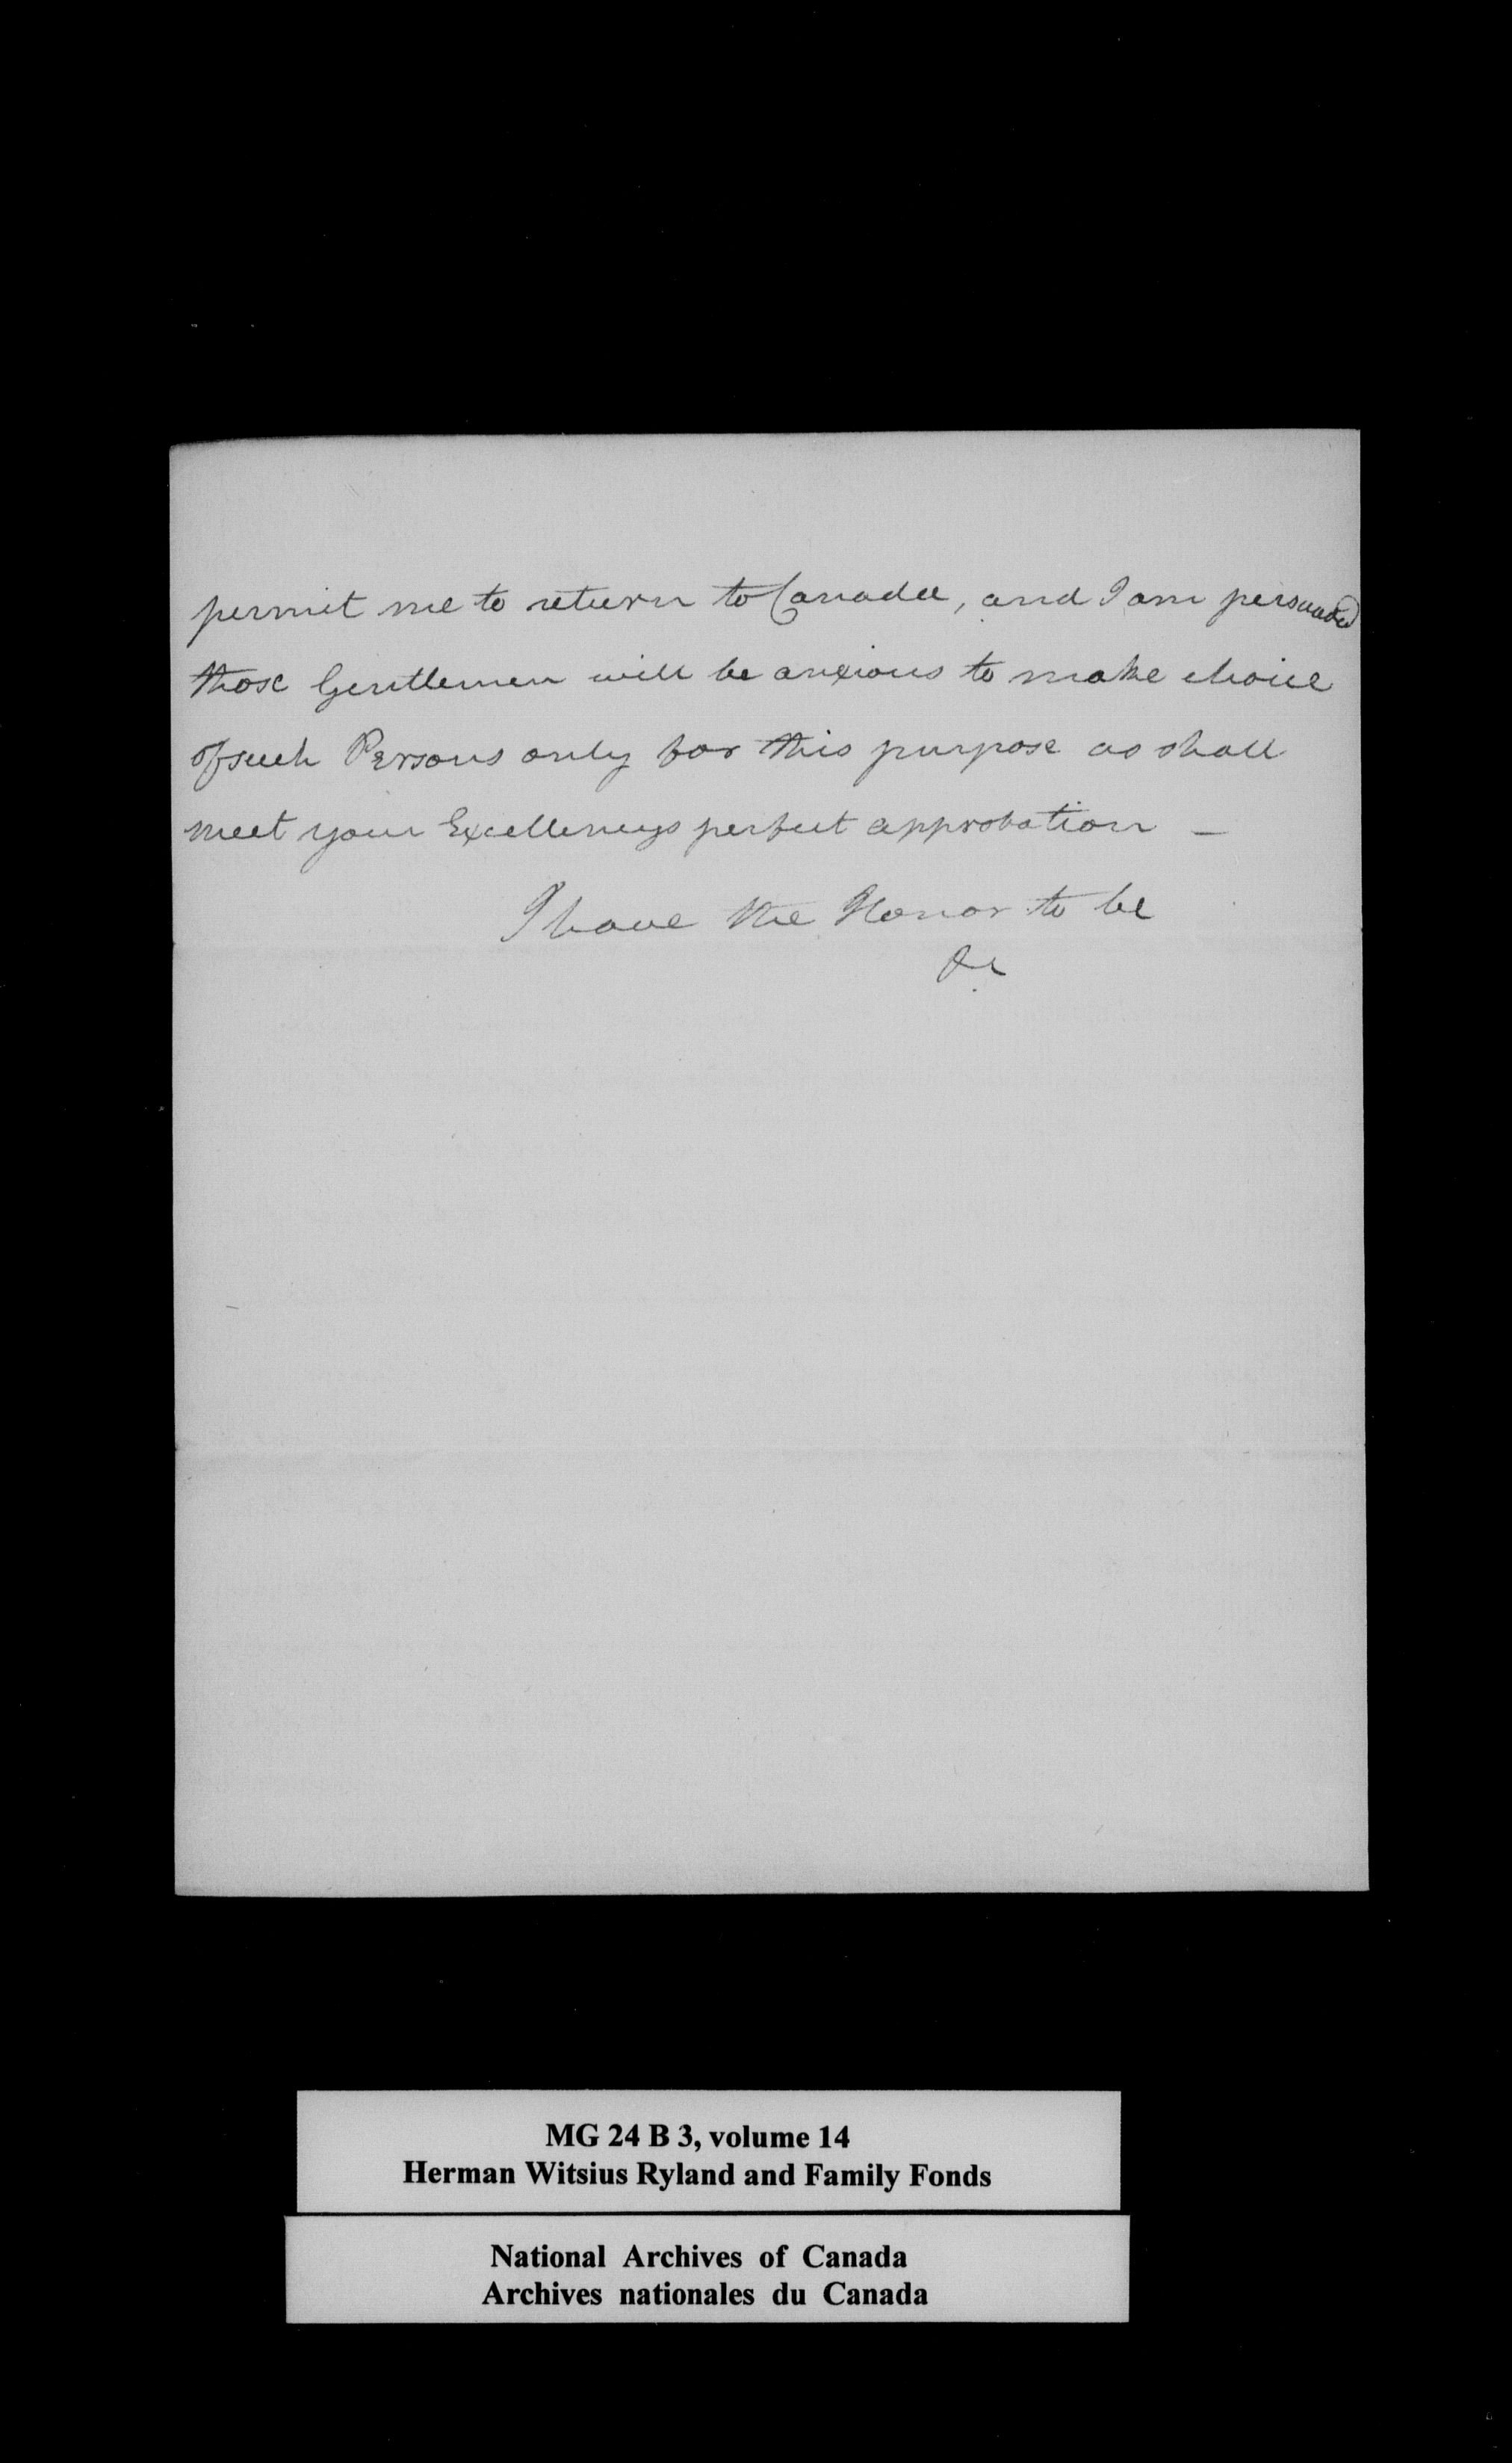 permit me to return to Canada, and I am persuaded
those Gentlemen will be anxious to make choice
of such Persons only for this purpose as shall
meet your Excellencys perfect approbation —
I have the Honor to be
&c
MG 24 B 3, volume 14
Herman Witsius Ryland and Family Fonds
National Archives of Canada
Archives nationales du Canada